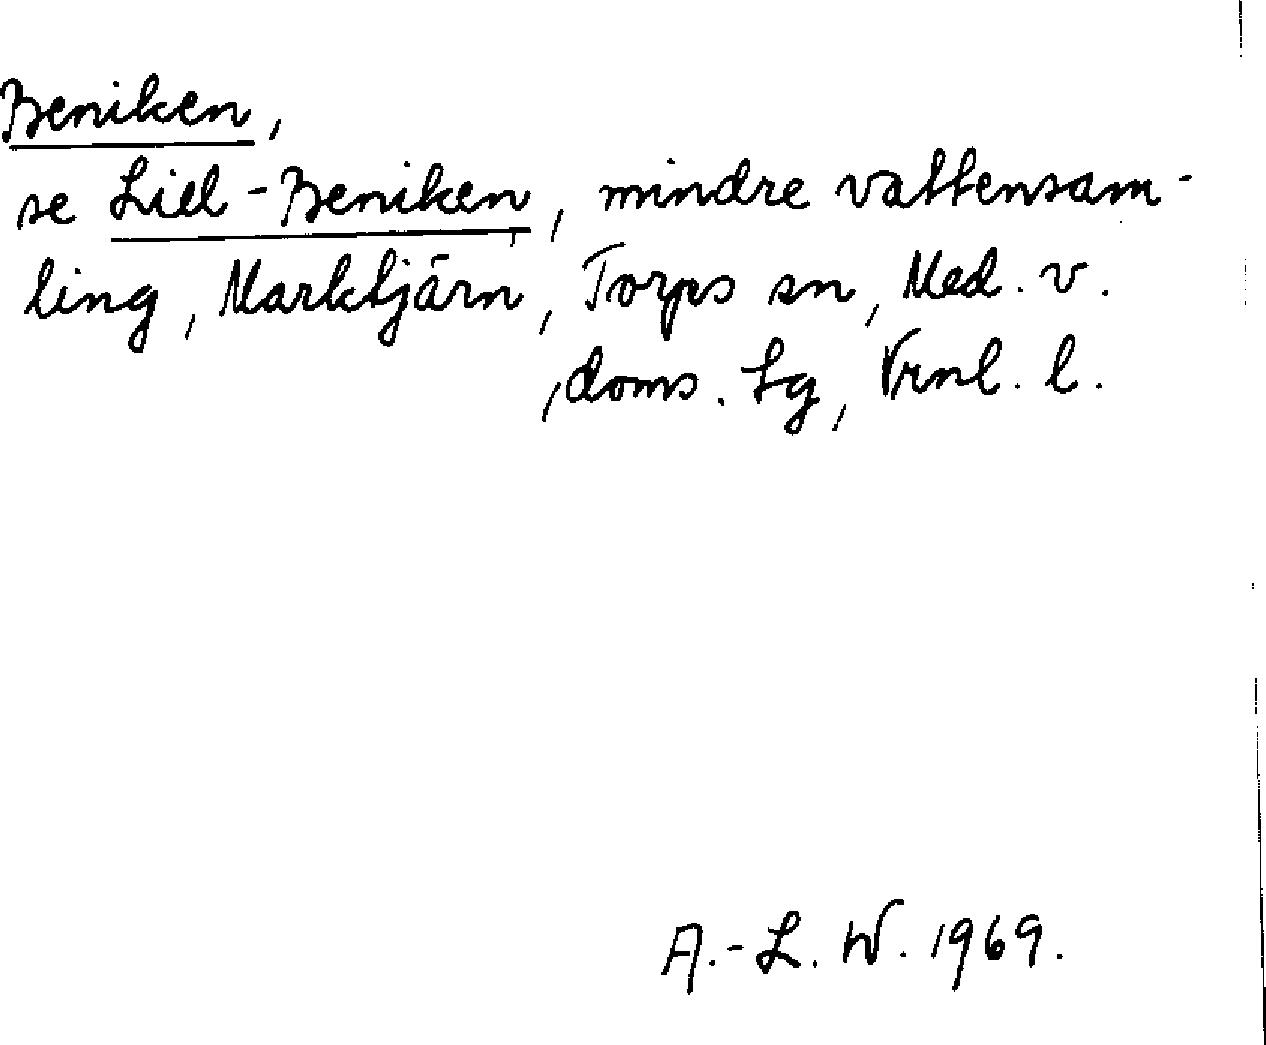 Beniken,
se Liel-Beniken, mindre vattensam-
ling, Marktjärn, Torps sn, Med. v.
doms. Lg, Vrnl. l.
A.-L. W. 1969.